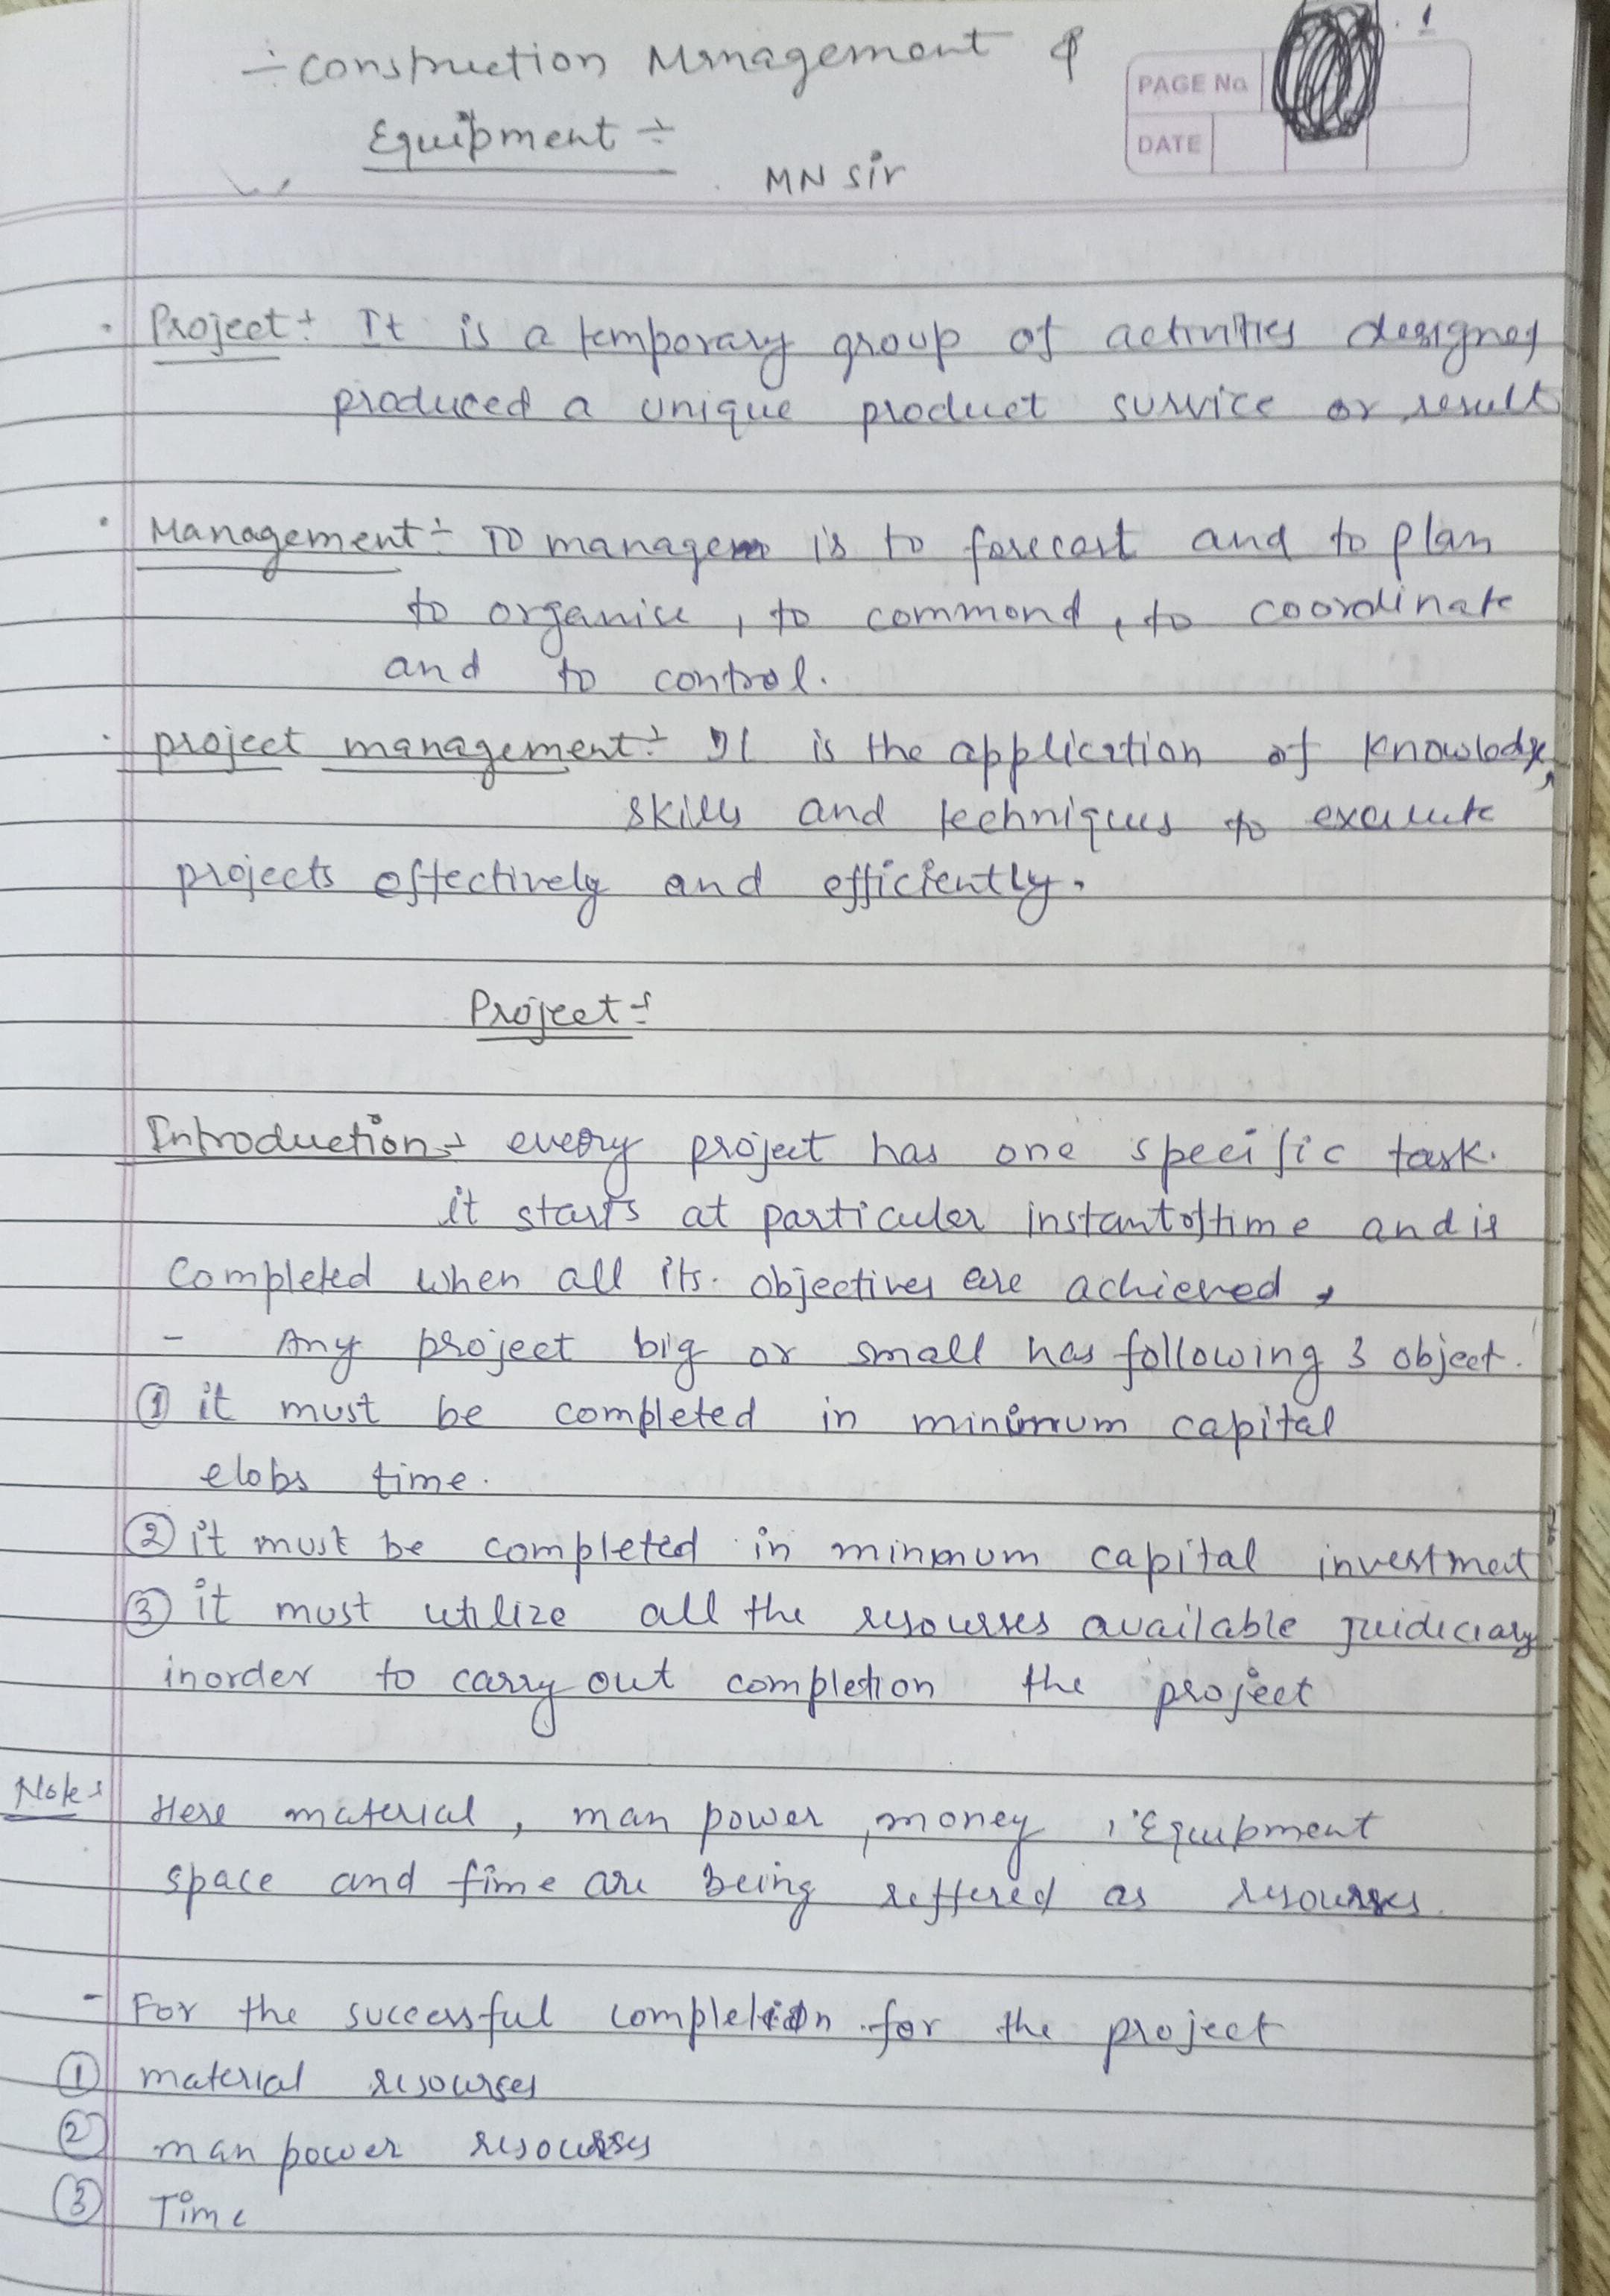 ÷ Construction Mmnagement &
Equipment ÷
MN Sir
PAGE No.
DATE
. 1
• Project ÷ It is a temporary group of activities designed
produced a unique product survice or result
• Management ÷ TO manage is to forecast and to plan
to organise, to commond, to coordinate
and to control.
• project management ÷ It is the application of knowledge,
skills and techniques to execute
projects effectively and efficiently.
Project ÷
Introduction ÷ every project has one specific task.
it starts at particuler instant of time and is
completed when all its. objectives are achieved,
- Any project big or small has following 3 object.
① it must be completed in minimum capital
elobs time.
② it must be completed in minmum capital investment
③ it must utilize all the resourses available juidiciary
inorder to carry out completion the project
Note:
Here material, man power, money, Equipment
space and time are being reffered as resourses.
- For the successful completion for the project
① material resourses
② man power resourses
③ Time